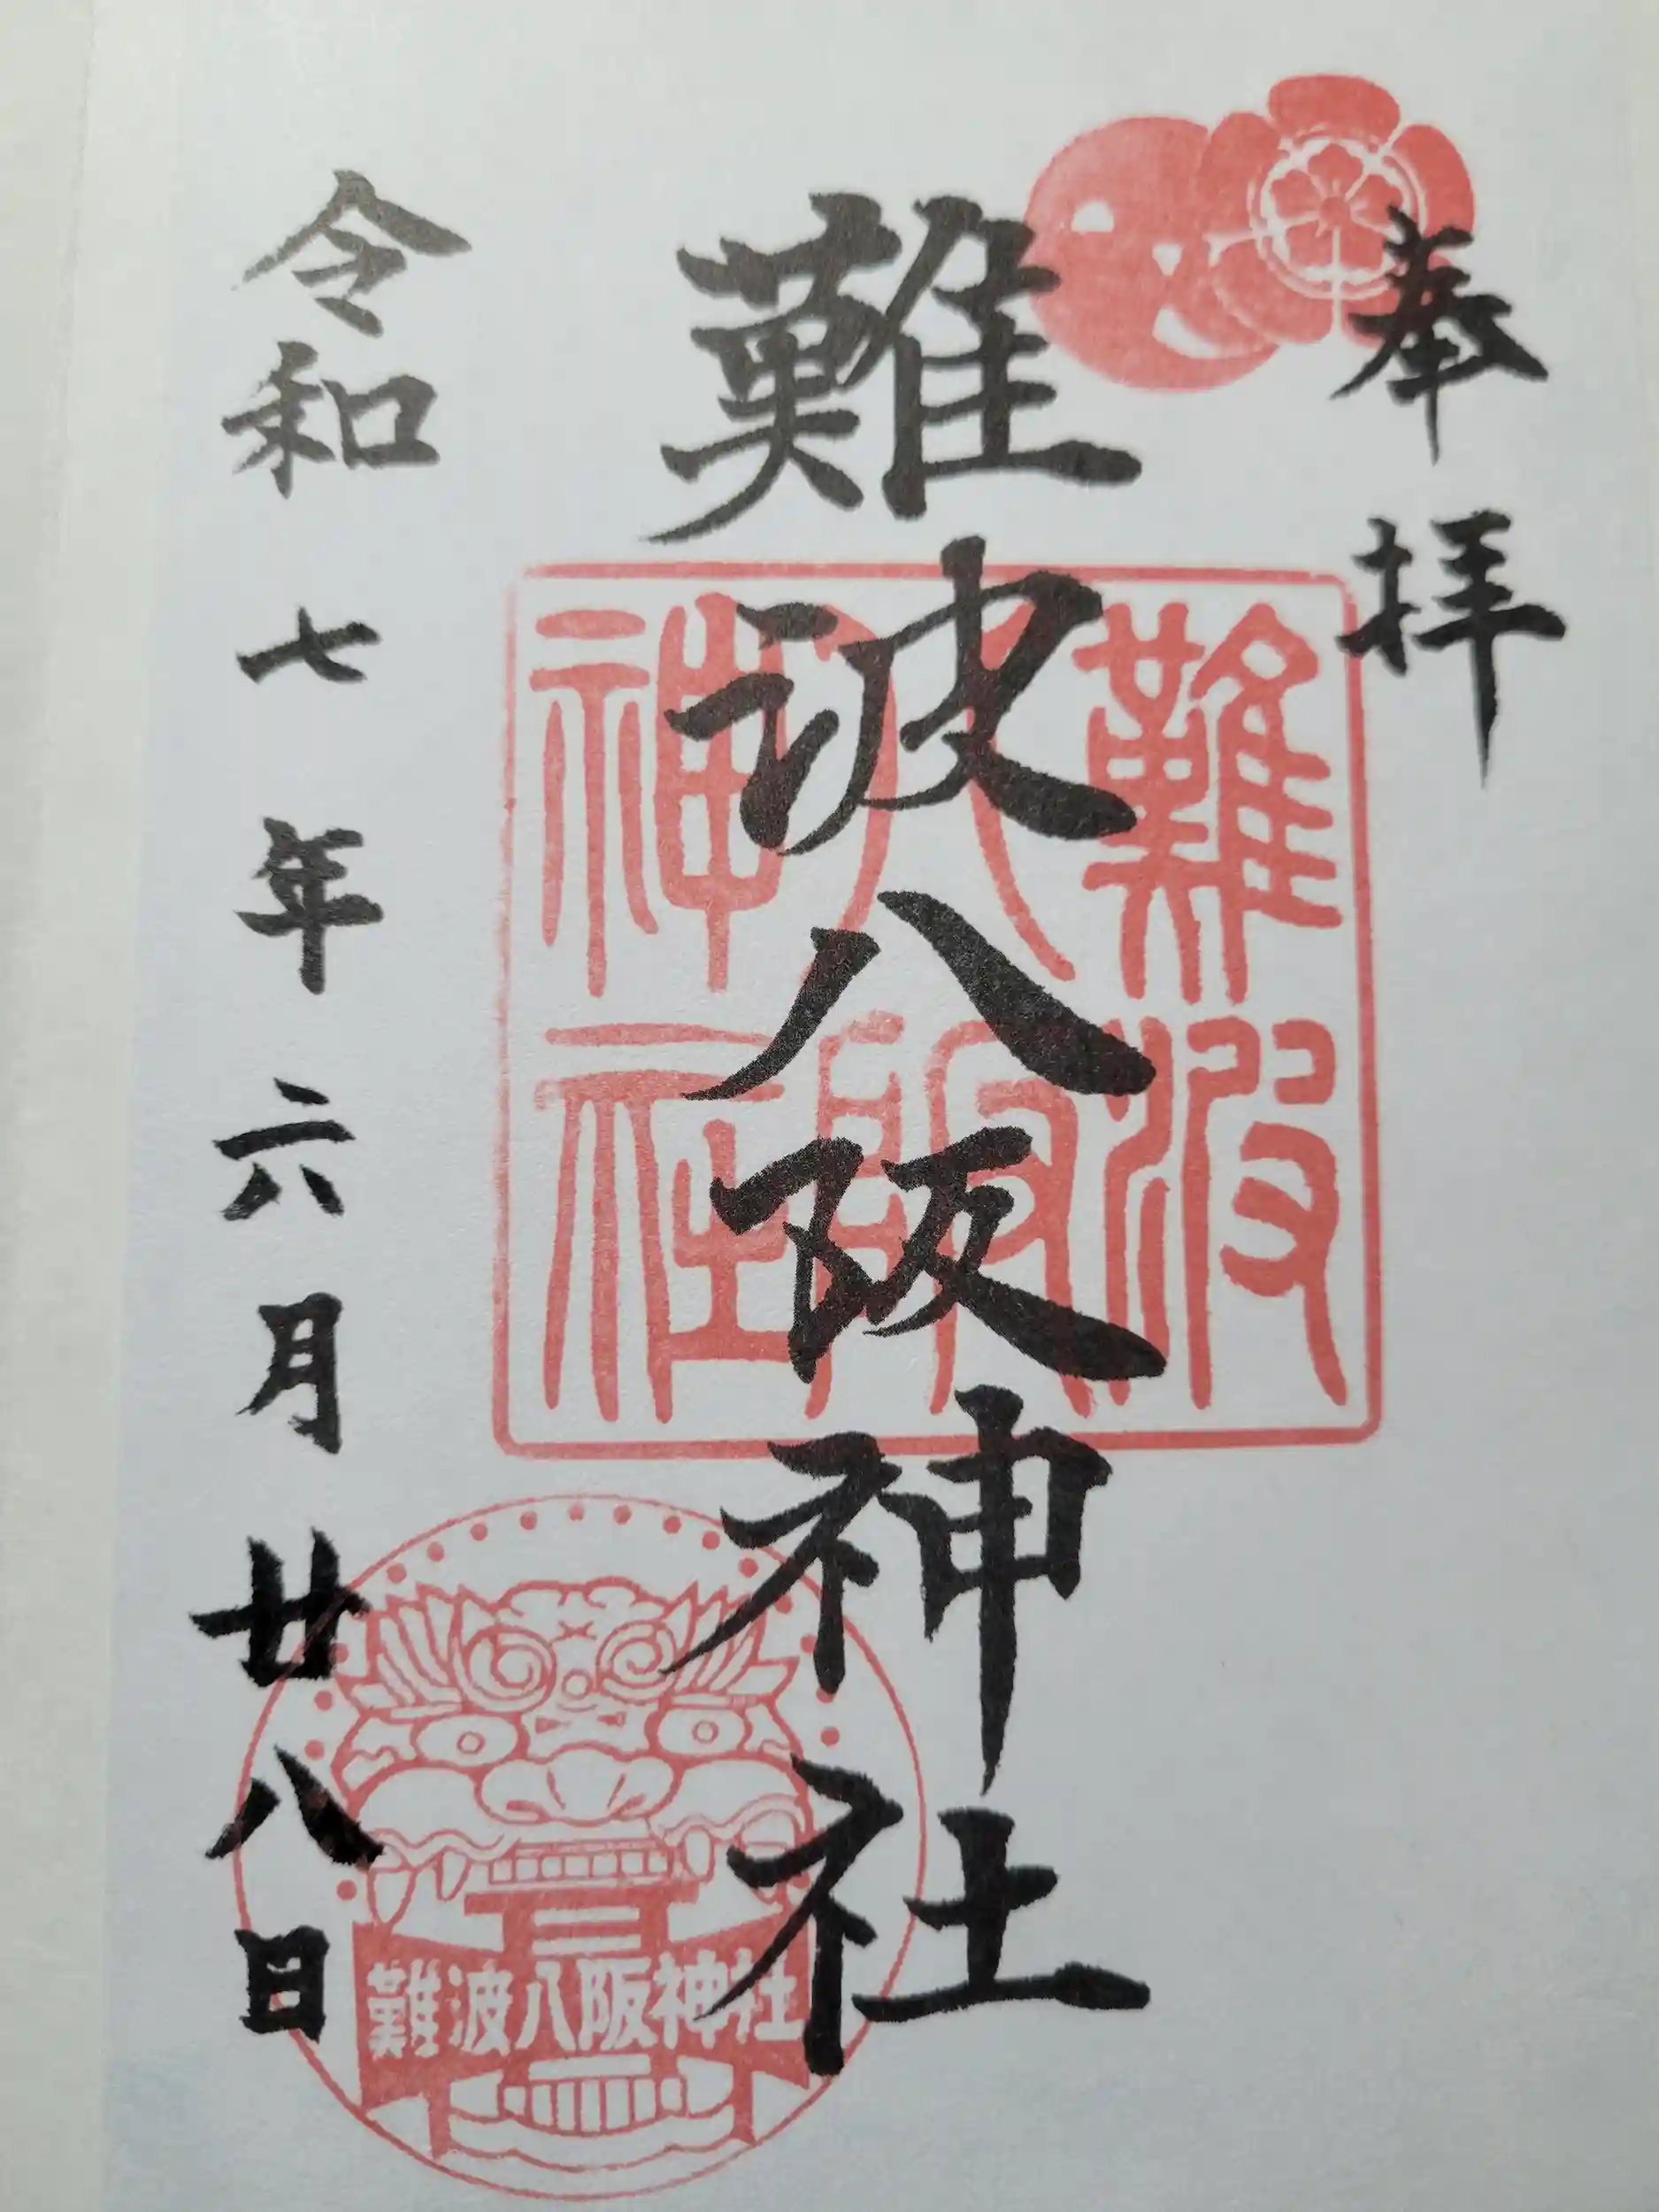 奉拝
難波八阪神社
令和七年六月廿八日
難波
八阪
神社
難波八阪神社